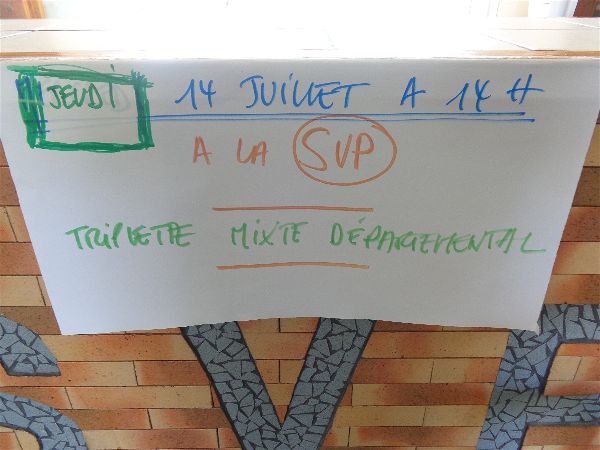 JEUDI 14 JUILLET A 14 H
A LA SVP
TRIPLETTE MIXTE DÉPARTEMENTAL
SVP